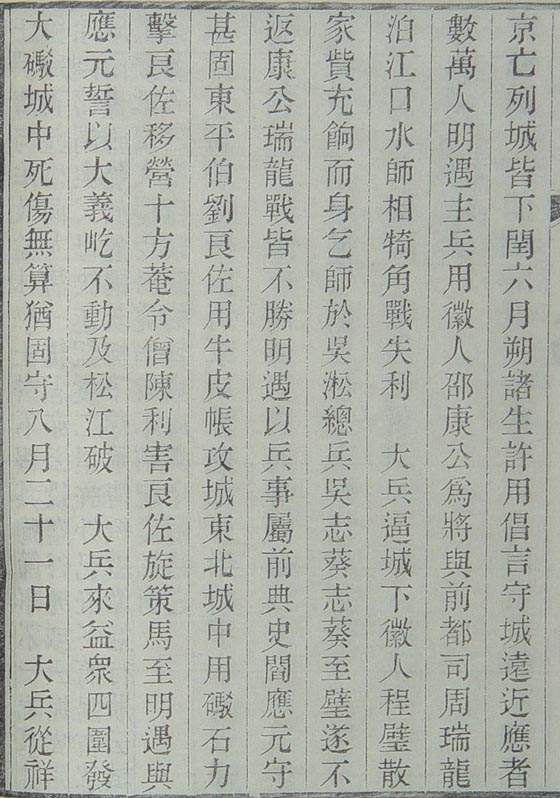 京亡列城皆下閏六月朔諸生許用倡言守城遠近應者
數萬人明遇主兵用徽人邵康公爲將與前都司周瑞龍
泊江口水師相犄角戰失利　大兵逼城下徽人程璧散
家貲充餉而身乞師於吳淞總兵吳志葵志葵至璧遂不
返康公瑞龍戰皆不勝明遇以兵事屬前典史閻應元守
甚固東平伯劉良佐用牛皮帳攻城東北城中用礮石力
擊良佐移營十方菴令僧陳利害良佐旋策馬至明遇與
應元誓以大義屹不動及松江破　大兵來益衆四圍發
大礮城中死傷無算猶固守八月二十一日　大兵從祥